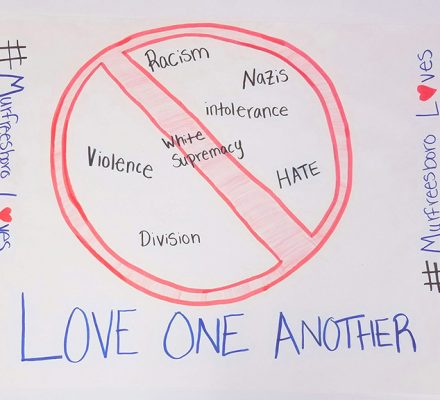 #Murfreesboro Loves
Racism
Nazis
intolerance
White
Supremacy
Violence
HATE
Division
#Murfreesboro Loves
LOVE ONE ANOTHER